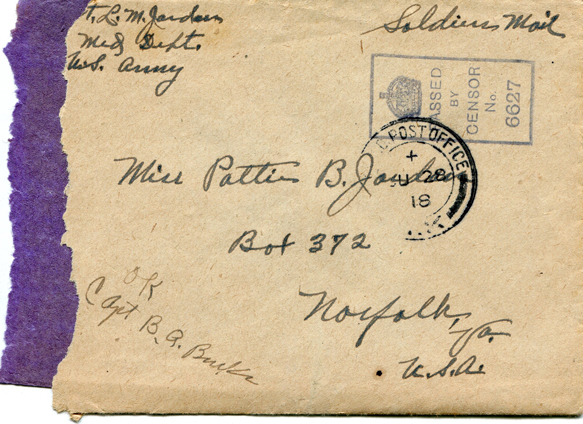 t. L. M. Jordan
Med Dept.
U.S. Army
Soldiers Mail
ASSED
BY
CENSOR
No.
6627
POST OFFICE
28
18
Miss Pattie B. Jordan
Box 372
Norfolk, Va.
U.S.A.
OK
Capt B. A. Burks